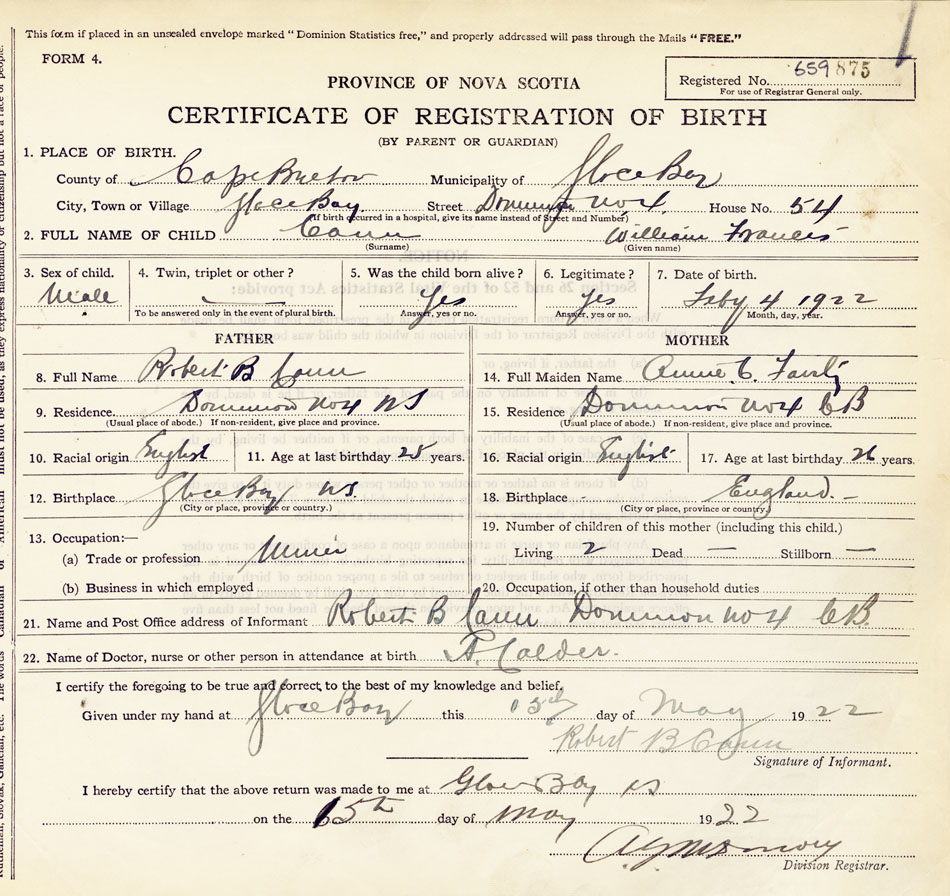 This form if placed in an unsealed envelope marked "Dominion Statistics free," and properly addressed will pass through the Mails "FREE."
FORM 4.
Registered No. 659875
For use of Registrar General only.
PROVINCE OF NOVA SCOTIA
CERTIFICATE OF REGISTRATION OF BIRTH
(BY PARENT OR GUARDIAN)
1. PLACE OF BIRTH.
County of Cape Breton Municipality of Glace Bay
City, Town or Village Glace Bay Street Dominion No 4. House No. 54
(If birth occurred in a hospital, give its name instead of Street and Number)
2. FULL NAME OF CHILD Cann William Francis
(Surname) (Given name)
3. Sex of child. 4. Twin, triplet or other? 5. Was the child born alive? 6. Legitimate? 7. Date of birth.
Male — Yes Yes Feby 4 1922
To be answered only in the event of plural birth. Answer, yes or no. Answer, yes or no. Month, day, year.
FATHER
8. Full Name Robert B Cann
9. Residence Dominion No 4 NS
(Usual place of abode.) If non-resident, give place and province.
10. Racial origin English 11. Age at last birthday 25 years.
12. Birthplace Glace Bay NS.
(City or place, province or country.)
13. Occupation:—
(a) Trade or profession Miner
(b) Business in which employed
MOTHER
14. Full Maiden Name Annie C.
15. Residence Dominion No 4 CB
(Usual place of abode.) If non-resident, give place and province.
16. Racial origin English 17. Age at last birthday 26 years.
18. Birthplace England. —
(City or place, province or country.)
19. Number of children of this mother (including this child.)
Living 2 Dead — Stillborn —
20. Occupation, if other than household duties
21. Name and Post Office address of Informant Robert B Cann Dominion No 4 CB.
22. Name of Doctor, nurse or other person in attendance at birth A. Calder.
I certify the foregoing to be true and correct, to the best of my knowledge and belief,
Given under my hand at Glace Bay this day of May 1922
Robert B Cann
Signature of Informant.
I hereby certify that the above return was made to me at Glace Bay
on the 15th day of May 1922
Division Registrar.